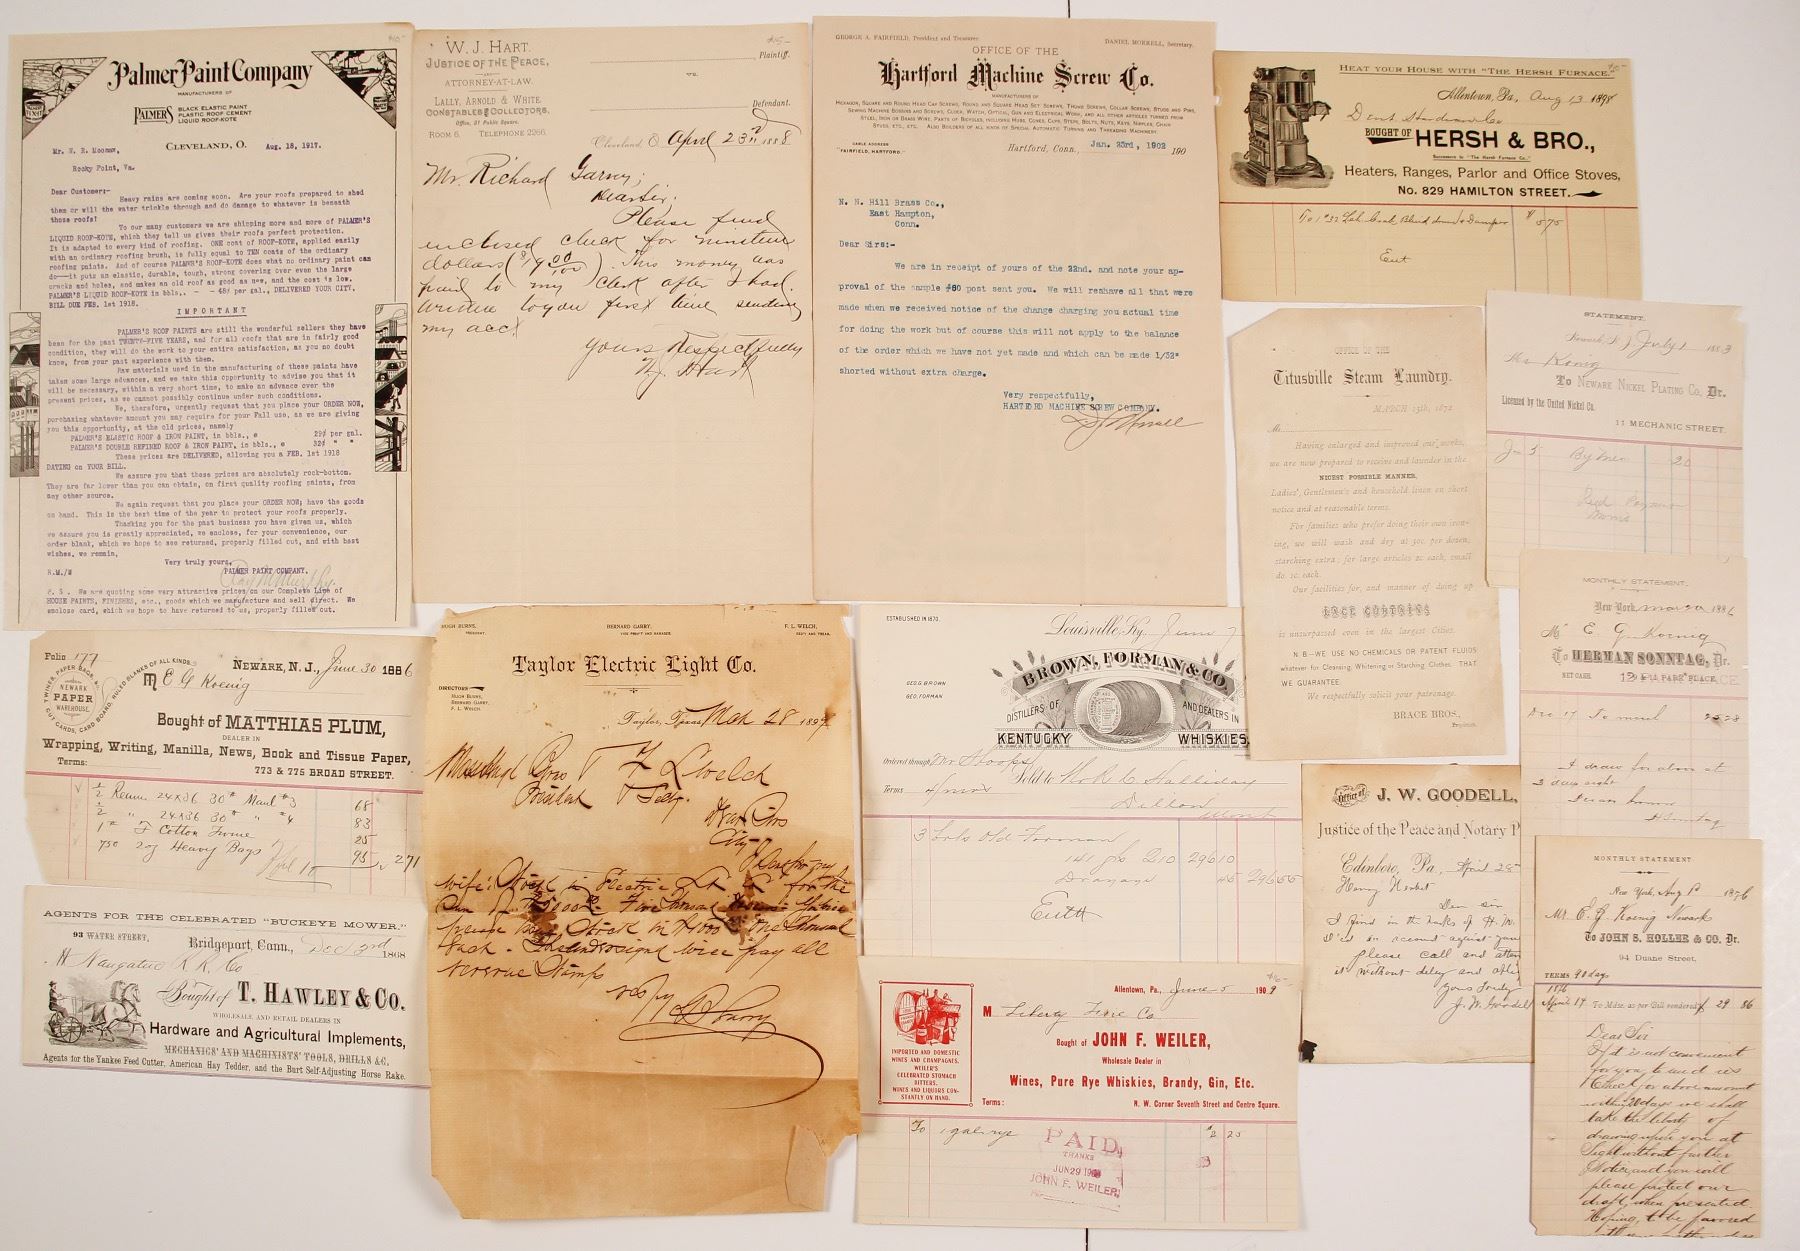 Palmer Paint Company
MANUFACTURERS OF
PALMER'S
BLACK ELASTIC PAINT
PLASTIC ROOF CEMENT
LIQUID ROOF-KOTE
CLEVELAND, O.
Aug. 18, 1917.
Mr. W. R. Moomaw,
Rocky Point, Va.
Dear Customer:-
Heavy rains are coming soon. Are your roofs prepared to shed
them or will the water trickle through and do damage to whatever is beneath
those roofs?
To our many customers we are shipping more and more of PALMER'S
LIQUID ROOF-KOTE, which they tell us gives their roofs perfect protection.
It is adapted to every kind of roofing. ONE coat of ROOF-KOTE, applied easily
with an ordinary roofing brush, is fully equal to TEN coats of the ordinary
roofing paints. And of course PALMER'S ROOF-KOTE does what no ordinary paint can
do---it puts an elastic, durable, tough, strong covering over even the large
cracks and holes, and makes an old roof as good as new, and the cost is low.
PALMER'S LIQUID ROOF-KOTE in bbls., - - 48¢ per gal., DELIVERED YOUR CITY,
BILL DUE FEB. 1st 1918.
IMPORTANT
PALMER'S ROOF PAINTS are still the wonderful sellers they have
been for the past TWENTY-FIVE YEARS, and for all roofs that are in fairly good
condition, they will do the work to your entire satisfaction, as you no doubt
know, from your past experience with them.
Raw materials used in the manufacturing of these paints have
taken some large advances, and we take this opportunity to advise you that it
will be necessary, within a very short time, to make an advance over the
present prices, as we cannot possibly continue under such conditions.
We, therefore, urgently request that you place your ORDER NOW,
purchasing whatever amount you may require for your Fall use, as we are giving
you this opportunity, at the old prices, namely
PALMER'S ELASTIC ROOF & IRON PAINT, in bbls., @ 29¢ per gal.
PALMER'S DOUBLE REFINED ROOF & IRON PAINT, in bbls., @ 32¢ " "
These prices are DELIVERED, allowing you a FEB. 1st 1918
DATING on YOUR BILL.
We assure you that these prices are absolutely rock-bottom.
They are far lower than you can obtain, on first quality roofing paints, from
any other source.
We again request that you place your ORDER NOW; have the goods
on hand. This is the best time of the year to protect your roofs properly.
Thanking you for the past business you have given us, which
we assure you is greatly appreciated, we enclose, for your convenience, our
order blank, which we hope to see returned, properly filled out, and with best
wishes, we remain,
Very truly yours,
R.M./M
PALMER PAINT COMPANY.
P. S. We are quoting some very attractive prices on our Complete Line of
HOUSE PAINTS, FINISHES, etc., goods which we manufacture and sell direct. We
enclose card, which we hope to have returned to us, properly filled out.
W. J. HART.
JUSTICE OF THE PEACE,
AND
ATTORNEY-AT-LAW.
LALLY, ARNOLD & WHITE
CONSTABLES & COLLECTORS,
Office, 21 Public Square.
ROOM 6. TELEPHONE 2266.
Plaintiff.
vs.
Defendant.
Cleveland, O April 23rd 1888
Mr. Richard Garvey;
Dear Sir;
Please find
enclosed check for nineteen
dollars ($19 00/100). This money was
paid to my clerk after I had
written to you first time sending
my acct
Yours Respectfully
W. J. Hart
GEORGE A. FAIRFIELD, President and Treasurer.
DANIEL MORRELL, Secretary.
OFFICE OF THE
Hartford Machine Screw Co.
MANUFACTURERS OF
HEXAGON, SQUARE AND ROUND HEAD CAP SCREWS, ROUND AND SQUARE HEAD SET SCREWS, THUMB SCREWS, COLLAR SCREWS, STUDS AND PINS,
SEWING MACHINE BOBBINS AND SCREWS, CLOCK, WATCH, OPTICAL, GUN AND ELECTRICAL WORK, AND ALL OTHER ARTICLES TURNED FROM
STEEL, IRON OR BRASS WIRE, PARTS OF BICYCLES, INCLUDING HUBS, CONES, CUPS, STEPS, BOLTS, NUTS, KEYS, NIPPLES, CHAIN
STUDS, ETC., ETC. ALSO BUILDERS OF ALL KINDS OF SPECIAL AUTOMATIC TURNING AND THREADING MACHINERY.
CABLE ADDRESS
"FAIRFIELD, HARTFORD."
Hartford, Conn., Jan. 23rd, 1902 190
N. N. Hill Brass Co.,
East Hampton,
Conn.
Dear Sirs:-
We are in receipt of yours of the 22nd. and note your ap-
proval of the sample #60 post sent you. We will reahave all that were
made when we received notice of the change charging you actual time
for doing the work but of course this will not apply to the balance
of the order which we have not yet made and which can be made 1/32"
shorted without extra charge.
Very respectfully,
HARTFORD MACHINE SCREW COMPANY.
HEAT YOUR HOUSE WITH "THE HERSH FURNACE."
Allentown, Pa., Aug 13 189
BOUGHT OF HERSH & BRO.,
Successors to "The Hersh Furnace Co."
Heaters, Ranges, Parlor and Office Stoves,
No. 829 HAMILTON STREET.
$ 5.75
OFFICE OF THE
Titusville Steam Laundry.
MARCH 15th, 1872
M
Having enlarged and improved our works,
we are now prepared to receive and launder in the
NICEST POSSIBLE MANNER,
Ladies', Gentlemen's and household linen on short
notice and at reasonable terms.
For families who prefer doing their own iron-
ing, we will wash and dry at 30c. per dozen;
starching extra; for large articles 2c. each, small
do. 1c. each.
Our facilities for, and manner of doing up
LACE CURTAINS
is unsurpassed even in the largest Cities.
N. B.—WE USE NO CHEMICALS OR PATENT FLUIDS
whatever for Cleansing, Whitening or Starching Clothes. THAT
WE GUARANTEE.
We respectfully solicit your patronage.
BRACE BROS.,
STATEMENT.
Newark, N J July 1 1883
Mr Koenig
To NEWARK NICKEL PLATING CO., Dr.
Licensed by the United Nickel Co.
11 MECHANIC STREET.
20
MONTHLY STATEMENT.
New York, 1886
M E. G. Koenig
To HERMAN SONNTAG, Dr.
NET CASH.
PARK PLACE
Dec 17
I draw for above at
3 days sight
MONTHLY STATEMENT
New York, Aug 1876
Mr. E. G. Koenig Newark
To JOHN S. HOLLER & CO. Dr.
94 Duane Street.
TERMS 90 days
1876
April 19 To Mdse. as per Bill rendered 29 86
Dear Sir
If it is not convenient
for you to send us
Check for above amount
within 20 days we shall
take the liberty of
drawing upon you at
Sight without further
Notice and you will
please protect our
draft, when presented
Hoping to be favored
Folio 177
NEWARK, N. J., June 30 1886
M E G Koenig
TWINES, PAPER BAGS & RULED BLANKS OF ALL KINDS.
NEWARK
PAPER
WAREHOUSE.
CUT CARDS, CARD BOARD,
Bought of MATTHIAS PLUM,
DEALER IN
Wrapping, Writing, Manilla, News, Book and Tissue Paper,
Terms: 773 & 775 BROAD STREET.
1/2 Ream 24x36 30# Manl #3 68
1/2 " 24x36 30# " #4 83
Cotton Twine 25
750 Heavy Bags 95 2 71
AGENTS FOR THE CELEBRATED "BUCKEYE MOWER."
93 WATER STREET,
Bridgeport, Conn., Dec 3rd 1868
Naugatuc R R. Co
Bought of T. HAWLEY & CO.
WHOLESALE AND RETAIL DEALERS IN
Hardware and Agricultural Implements,
MECHANICS' AND MACHINISTS' TOOLS, DRILLS &C,
Agents for the Yankee Feed Cutter, American Hay Tedder, and the Burt Self-Adjusting Horse Rake.
HUGH BURNS, PRESIDENT.
BERNARD GARRY, VICE PRES'T AND MANAGER.
F. L. WELCH, SEC'Y AND TREAS.
Taylor Electric Light Co.
DIRECTORS
HUGH BURNS,
BERNARD GARRY,
F. L. WELCH.
Taylor, Texas, Mch 28 189
F L Welch
President & Secty.
Dear Sirs
wife's Stock in Electric Lt Co for the
Sum of $5000 Five Thousand
Stock in $1000 One Thousand
Each. The undersigned will pay all
revenue Stamps
B Garry
ESTABLISHED IN 1870.
Louisville, Ky. June
GEO. G. BROWN
GEO. FORMAN
BROWN, FORMAN & CO.
DISTILLERS OF AND DEALERS IN
KENTUCKY WHISKIES
Ordered through Mr Hoops
Terms 4 mos
Dillon
Mont
3 brls Old Forman
141 gls 210 296 10
Drayage 45 296 55
OFFICE OF
J. W. GOODELL,
Justice of the Peace and Notary P
Edinboro, Pa., April 28
Henry Herbst
Dear Sir
I find in the books of H.
please call and atten
it without delay and
Yours Truly
J. W. Goodell
IMPORTED AND DOMESTIC
WINES AND CHAMPAGNES.
WEILER'S
CELEBRATED STOMACH
BITTERS.
WINES AND LIQUORS CON-
STANTLY ON HAND.
Allentown, Pa., June 5 1909
M Liberty Fire Co
Bought of JOHN F. WEILER,
Wholesale Dealer in
Wines, Pure Rye Whiskies, Brandy, Gin, Etc.
Terms: N. W. Corner Seventh Street and Centre Square.
To 1 gal rye $2 25
PAID
THANKS
JUN 29 19
JOHN F. WEILER